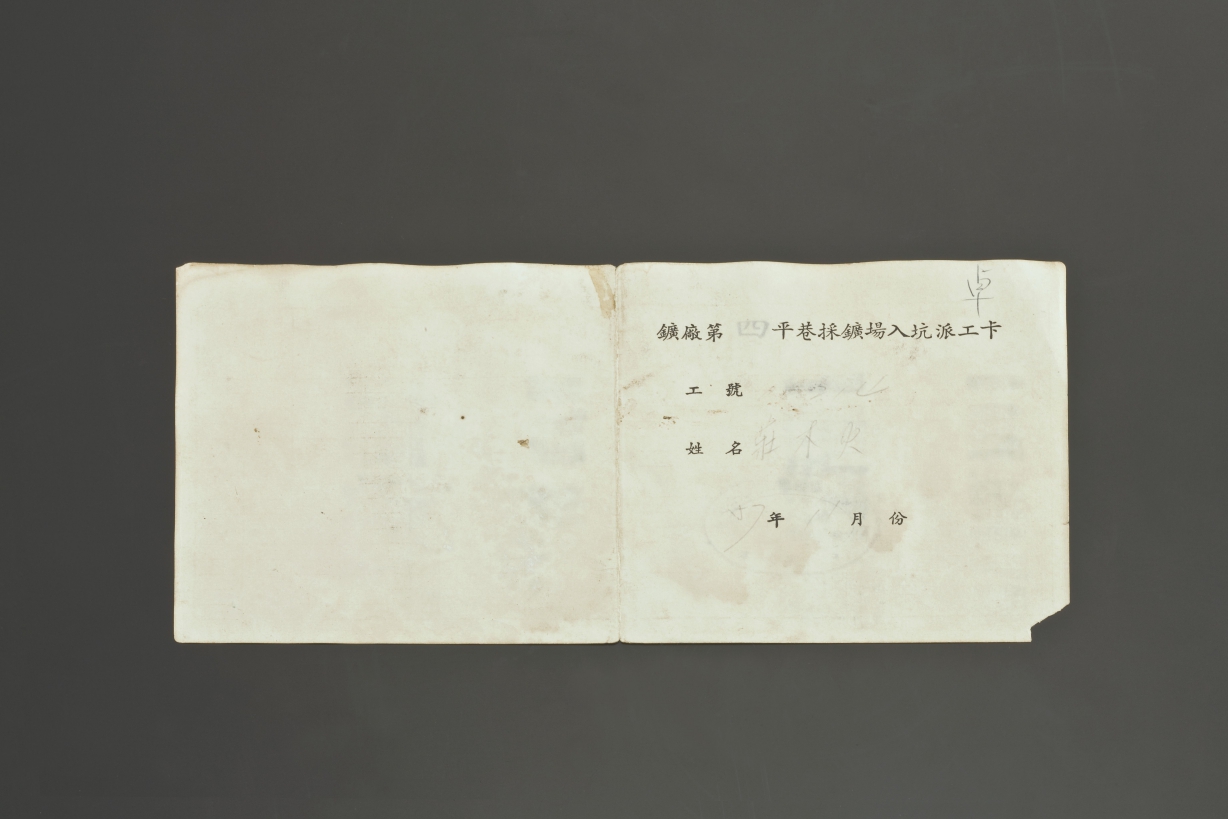 卓
鑛廠第四平巷採鑛場入坑派工卡
工號
姓名 莊木
年 月份